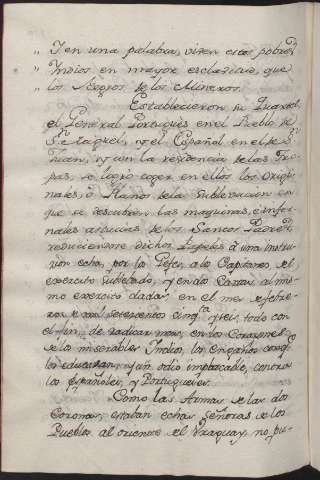 " Y en una palabra, viven esos pobres
" Indios en mayor esclavitud, que
" los Negros de los Mineros.
Establecieron su Quartel
el General Portugués en el Pueblo de
Sn. Miguel, y el Español en el de Sn.
Juan, y con la residencia de las Tro-
pas, se logró coger en ellos los Origi-
nales, ó Planos de la Sublevacion en
que se descubren las maquinas, è infer-
nales astucias de los Santos Padres,
reduciendose dichos Papeles à una Instru-
ción echa, por los Gefes, a los Capitanes del
exercito Sublevado, y en dos Cartas al mis-
mo exercito dadas, en el mes de febre-
ro de mil setecientos cinqta. y seis, todo con
el fin, de radicar mas, en los Corazones
de los miserables Indios, los engaños con qe.
los educaban, y un odio implacable, contra
los Españoles, y Portugueses.
Como las Armas de las dos
Coronas, estaban echas Señoras de los
Pueblos al oriente del Uraguay, no pu-